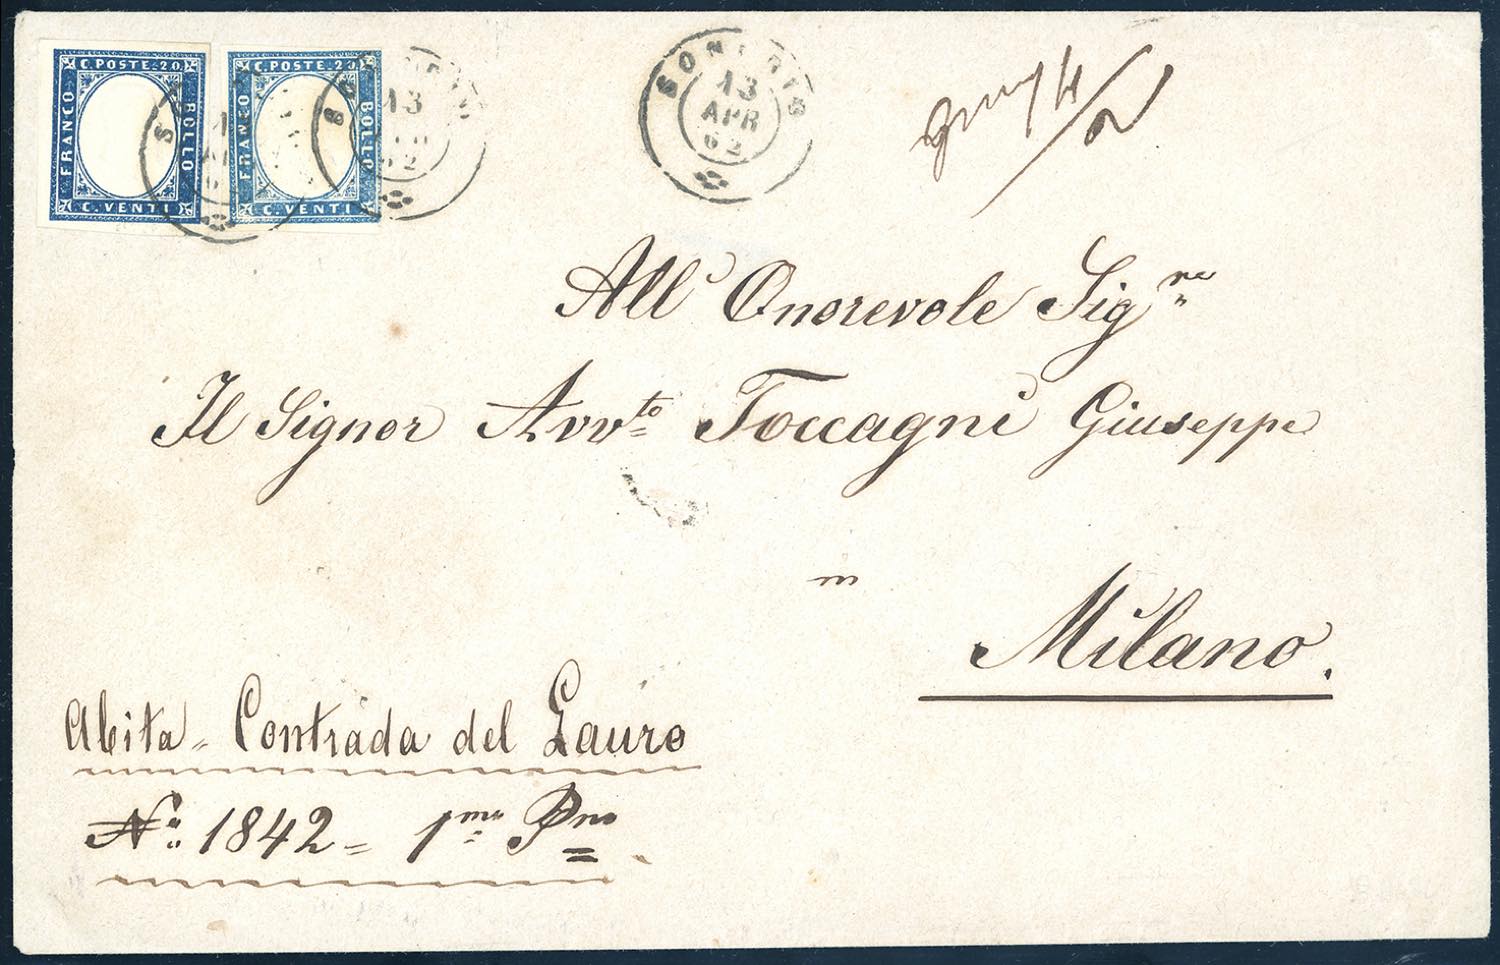 C. POSTE. 20.
FRANCO
BOLLO
C. VENTI
C. POSTE. 20.
FRANCO
BOLLO
C. VENTI
13
13
APR
62
All' Onorevole Sig.re
Il Signor Avv.to Toccagni Giuseppe
in
Milano.
Abita = Contrada del Lauro
No. 1842 = 1.mo Pno